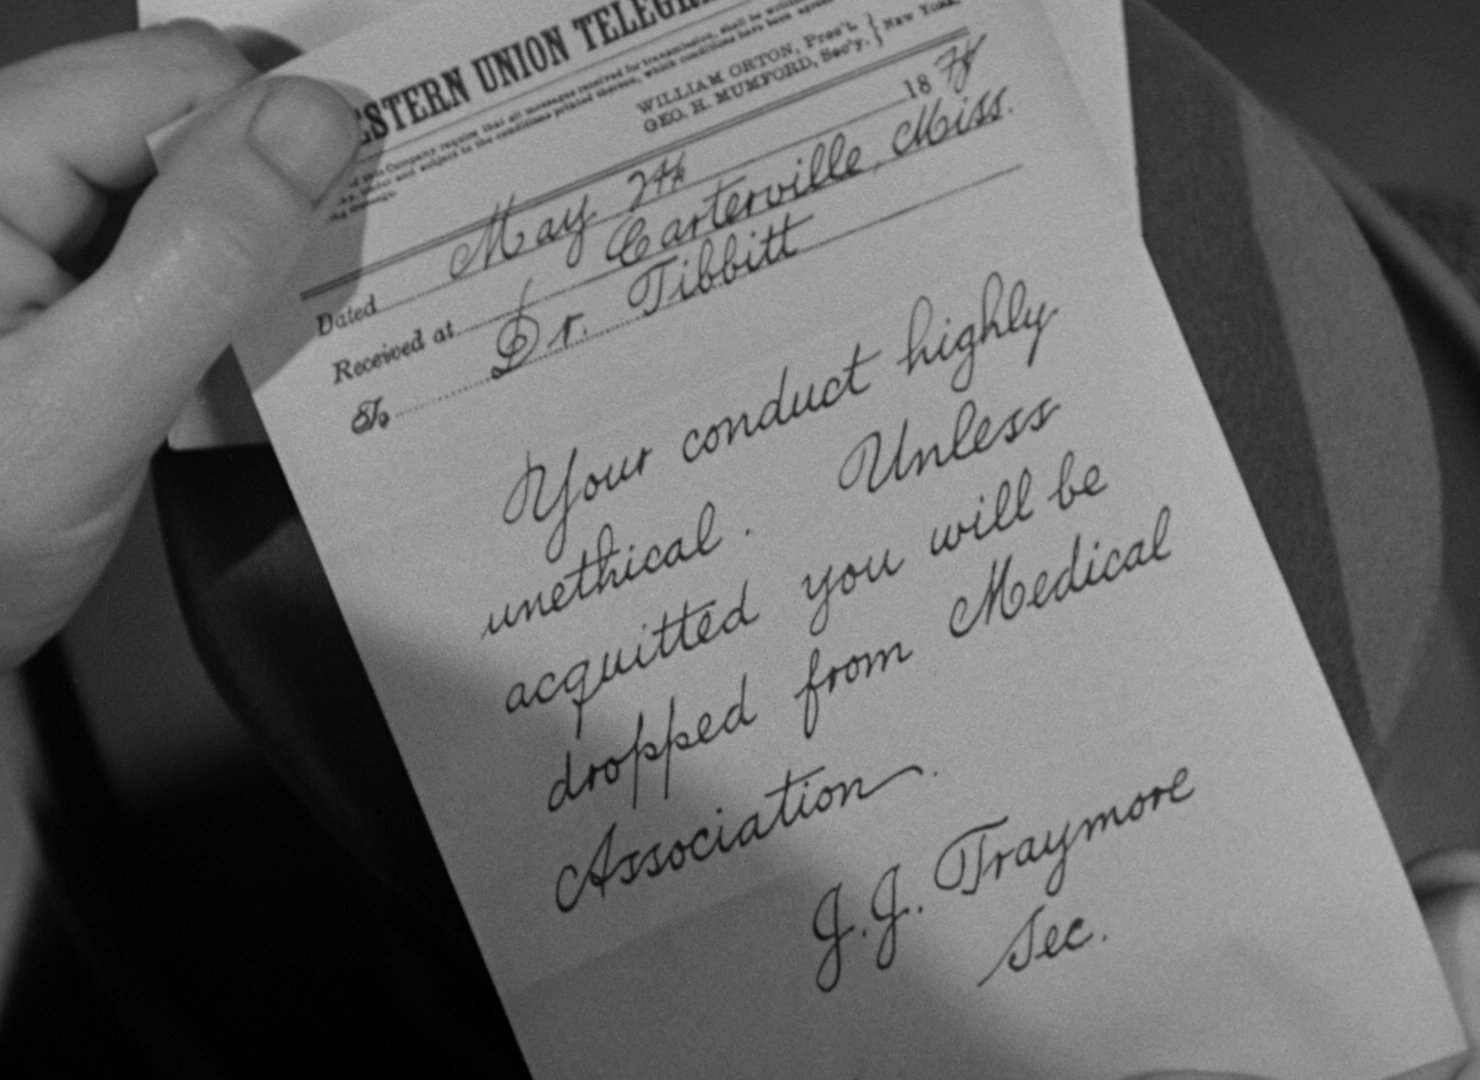 ESTERN UNION TELEGRA
of this Company require that all messages received for transmission, shall be
and subject to the conditions printed thereon, which conditions have been
ing message.
WILLIAM ORTON, Pres't,
GEO. H. MUMFORD, Sec'y. } New York.
18
Dated May 24
Received at Carterville, Miss.
To Dr. Tibbitt
Your conduct highly
unethical. Unless
acquitted you will be
dropped from Medical
Association.
J.J. Traymore
Sec.